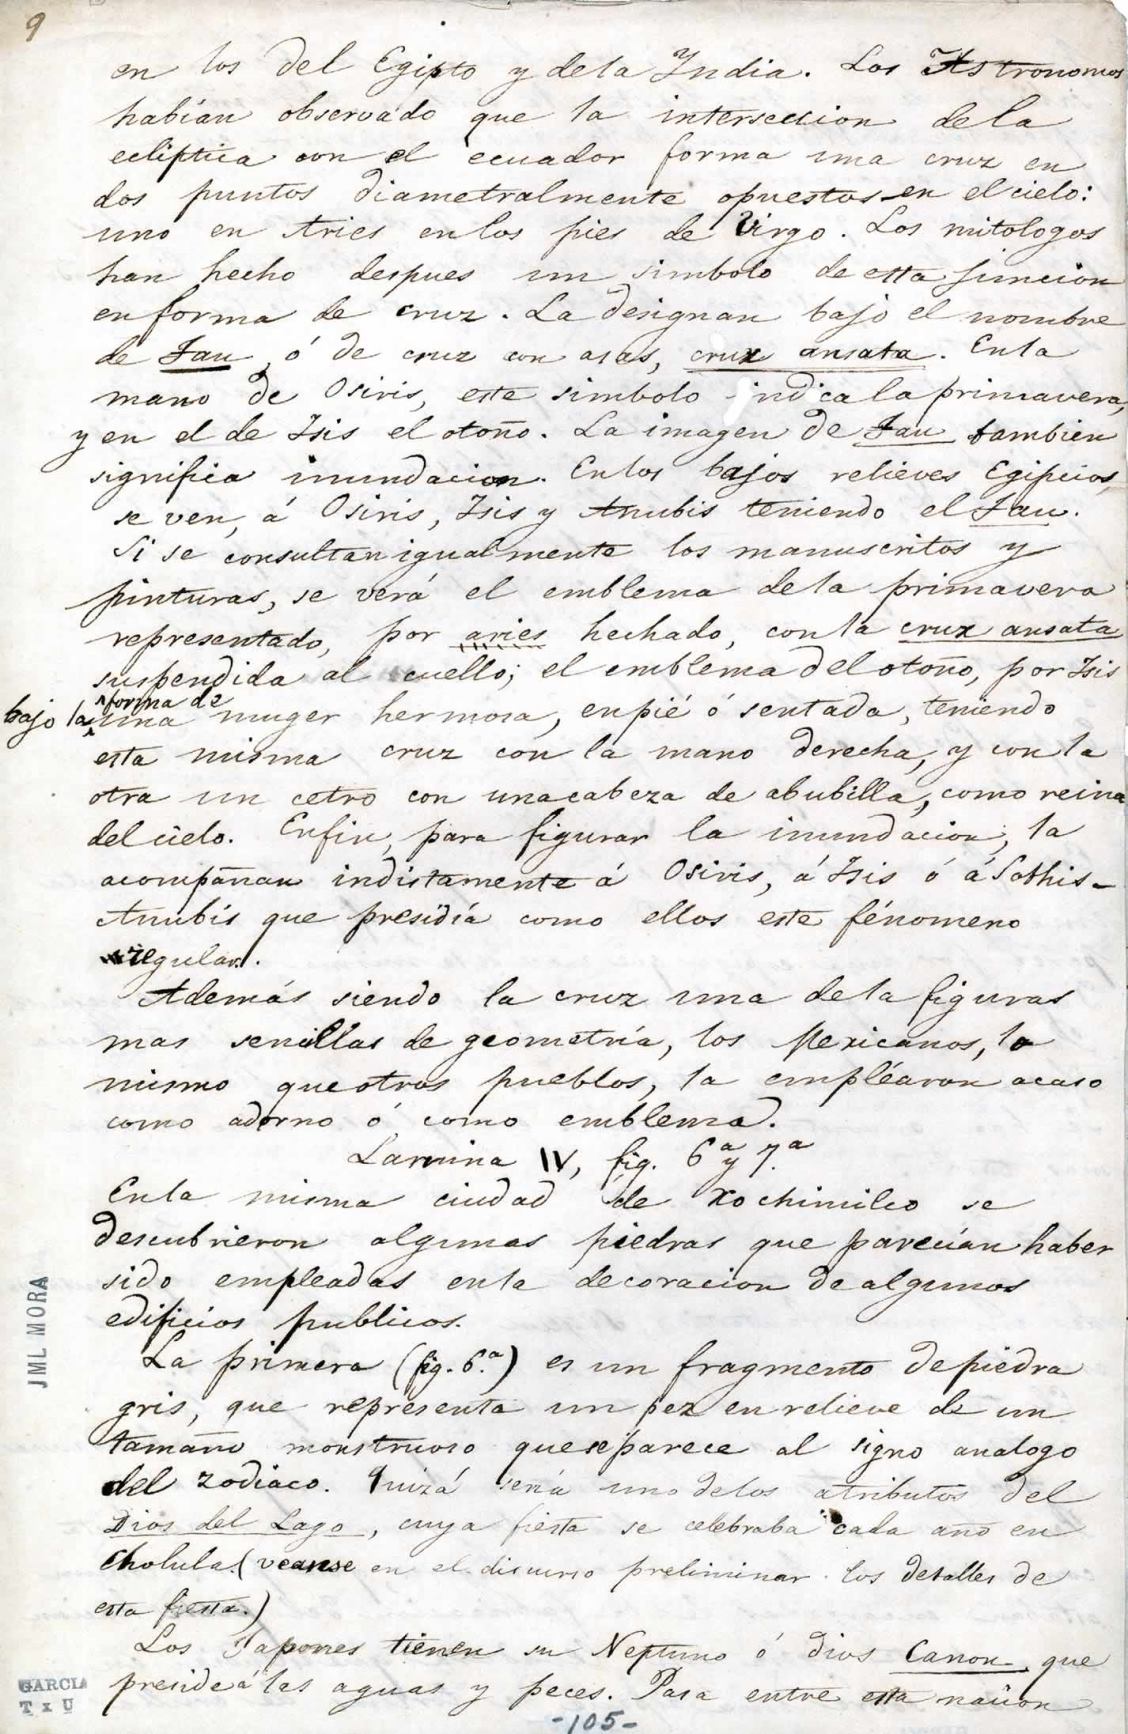 9
en los del Egipto y de la India. Los Astronomos
habían observado que la interseccion de la
ecliptica con el ecuador forma una cruz en
dos puntos diametralmente opuestos en el cielo:
uno en Aries en los pies de Virgo. Los mitologos
han hecho despues un simbolo de esta juncion
en forma de cruz. La designan bajo el nombre
de Tau, ó de cruz con asas, crux ansata. En la
mano de Osiris, este simbolo indica la primavera,
y en el de Isis el otoño. La imagen de Tau tambien
significa inundacion. En los bajos relieves Egipcios,
se ven, á Osiris, Isis y Anubis teniendo el Tau.
Si se consultan igualmente los manuscritos y
pinturas, se verá el emblema de la primavera
representado, por aries hechado, con la crux ansata
suspendida al cuello; el emblema del otoño, por Isis
bajo la forma de una muger hermosa, en pié ó sentada, teniendo
esta misma cruz con la mano derecha, y con la
otra un cetro con una cabeza de abubilla, como reina
del cielo. En fin, para figurar la inundacion, la
acompañan indistamente á Osiris, á Isis ó á Sothis-
Anubis que presidía como ellos este fénomeno
regular.
Además siendo la cruz una de la figuras
mas sencillas de geometría, los Mexicanos, lo
mismo que otros pueblos, la empléaron acaso
como adorno ó como emblema.
Lamina IV, fig. 6ª y 7ª
En la misma ciudad de Xochimilco se
descubrieron algunas piedras que parecían haber
sido empleadas en la decoracion de algunos
edificios publicos.
La primera (fig. 6.ª) es un fragmento de piedra
gris, que representa un pez en relieve de un
tamaño monstruoso que se parece al signo analogo
del zodiaco. Quizá sería uno de los atributos del
Dios del Lago, cuya fiesta se celebraba cada año en
Cholula. (veanse en el discurso preliminar los detalles de
esta fiesta.)
Los Japones tienen su Neptuno ó dios Canon que
preside á las aguas y peces. Pasa entre esta nacion
-105-
JML MORA
GARCIA
T x U